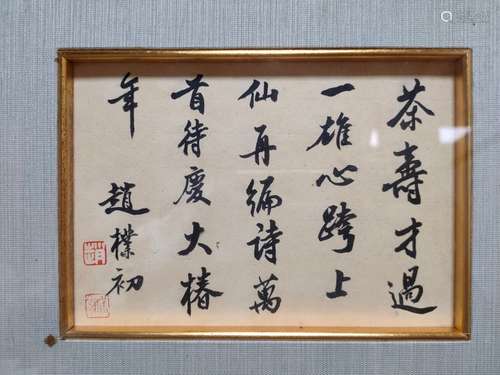 茶壽才過
一雄心跨上
仙再編詩萬
首待慶大椿
年
趙樸初